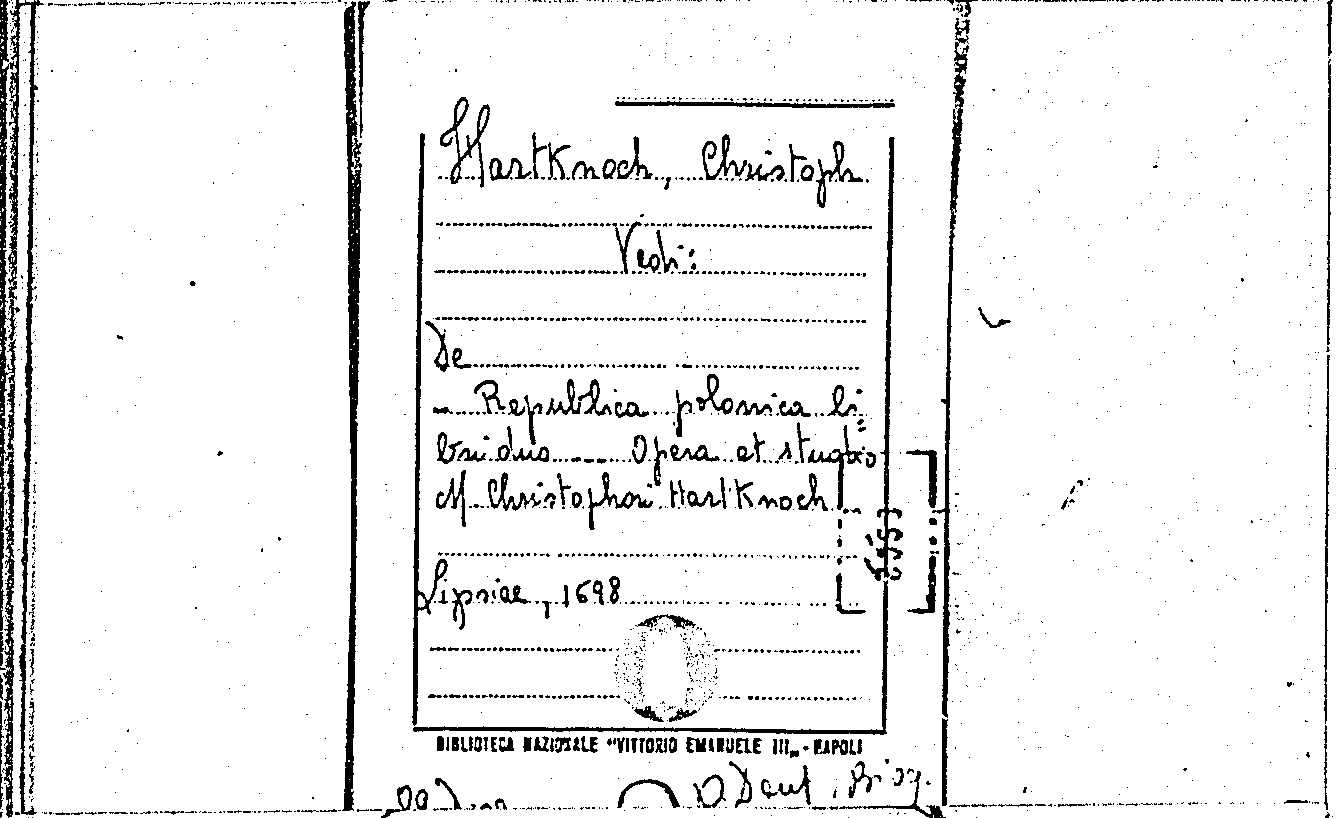 Hartknoch, Christoph
Vedi:
De
- Republica polonica li=
bri duo --- Opera et studio
M Christophori Hartknoch
Lipsiae, 1698
BIBLIOTECA NAZIONALE "VITTORIO EMANUELE III„ - NAPOLI